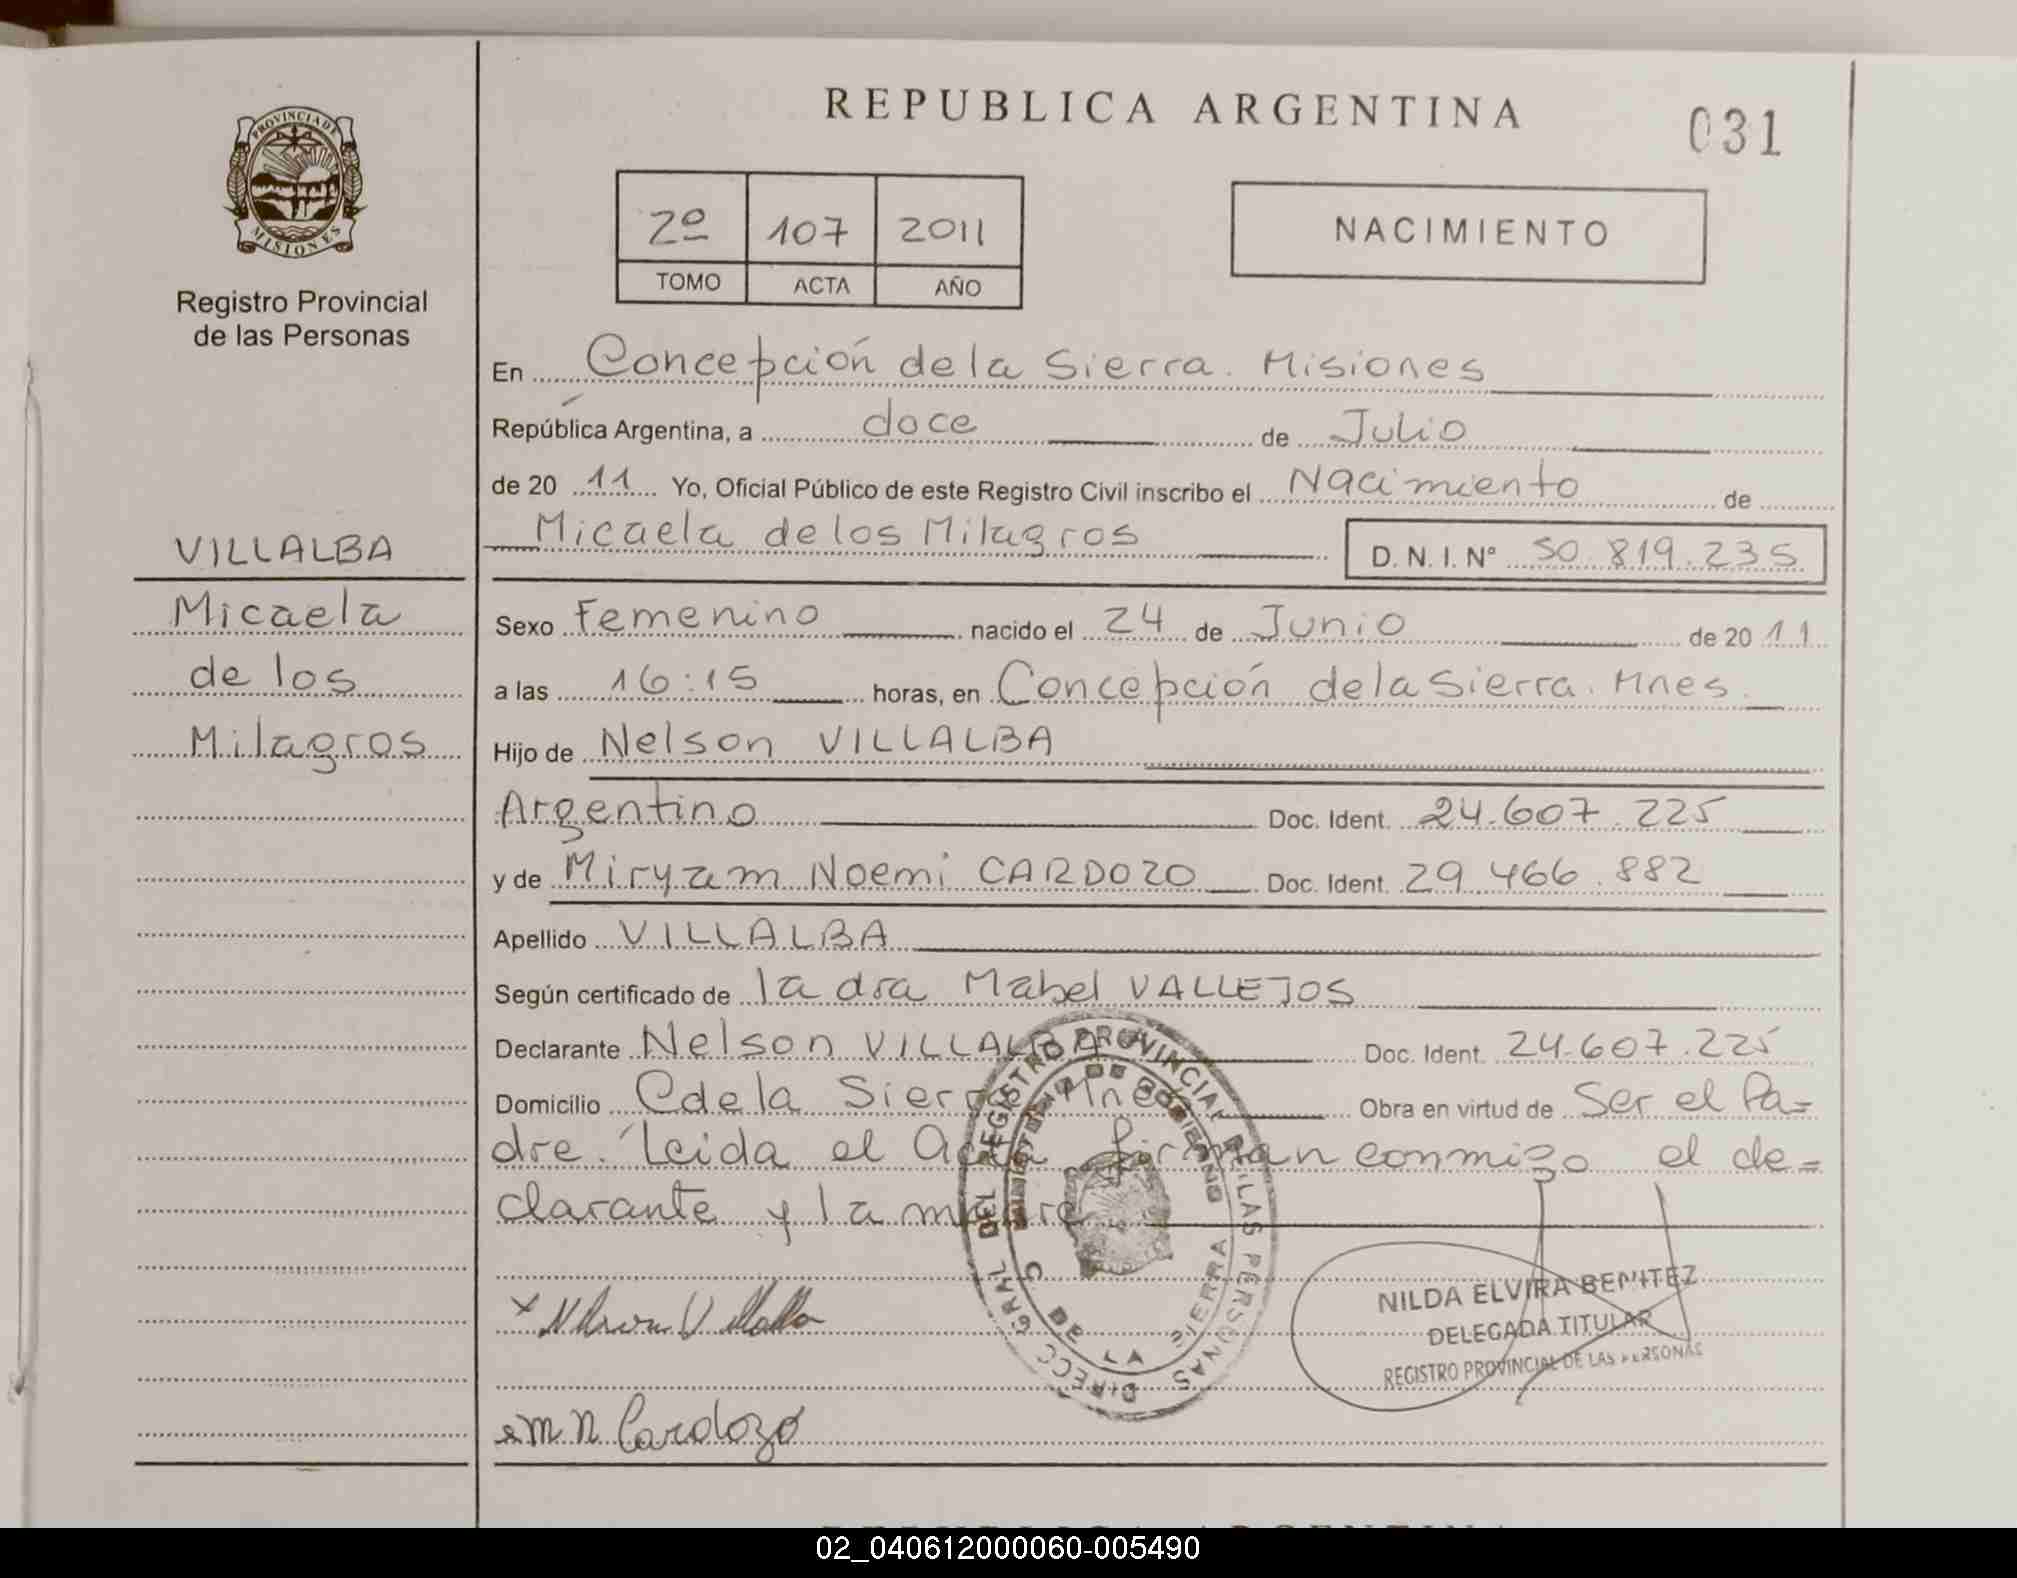 REPUBLICA ARGENTINA
031
PROVINCIA DE
MISIONES
Registro Provincial
de las Personas
2º 107 2011
TOMO ACTA AÑO
NACIMIENTO
En Concepción de la Sierra. Misiones
República Argentina, a doce de Julio
de 20 11 Yo, Oficial Público de este Registro Civil inscribo el Nacimiento de
Micaela de los Milagros D. N. I. Nº 50.819.235
VILLALBA
Micaela
de los
Milagros
Sexo Femenino nacido el 24 de Junio de 20 11
a las 16:15 horas, en Concepción de la Sierra. Mnes.
Hijo de Nelson VILLALBA
Argentino Doc. Ident. 24.607.225
y de Miryam Noemi CARDOZO Doc. Ident. 29.466.882
Apellido VILLALBA
Según certificado de la dra Mabel VALLEJOS
Declarante Nelson VILLALBA Doc. Ident. 24.607.225
Domicilio C de la Sierra Mnes Obra en virtud de Ser el Pa=
dre. Leida el Acta firman conmigo el de=
clarante y la madre
DIRECC GRAL DEL REGISTRO PROVINCIAL DE LAS PERSONAS
MINISTERIO DE GOBIERNO
C DE LA SIERRA
NILDA ELVIRA BENITEZ
DELEGADA TITULAR
REGISTRO PROVINCIAL DE LAS PERSONAS
x Nelson Villalba
M N Cardozo
REPUBLICA ARGENTINA
02_040612000060-005490